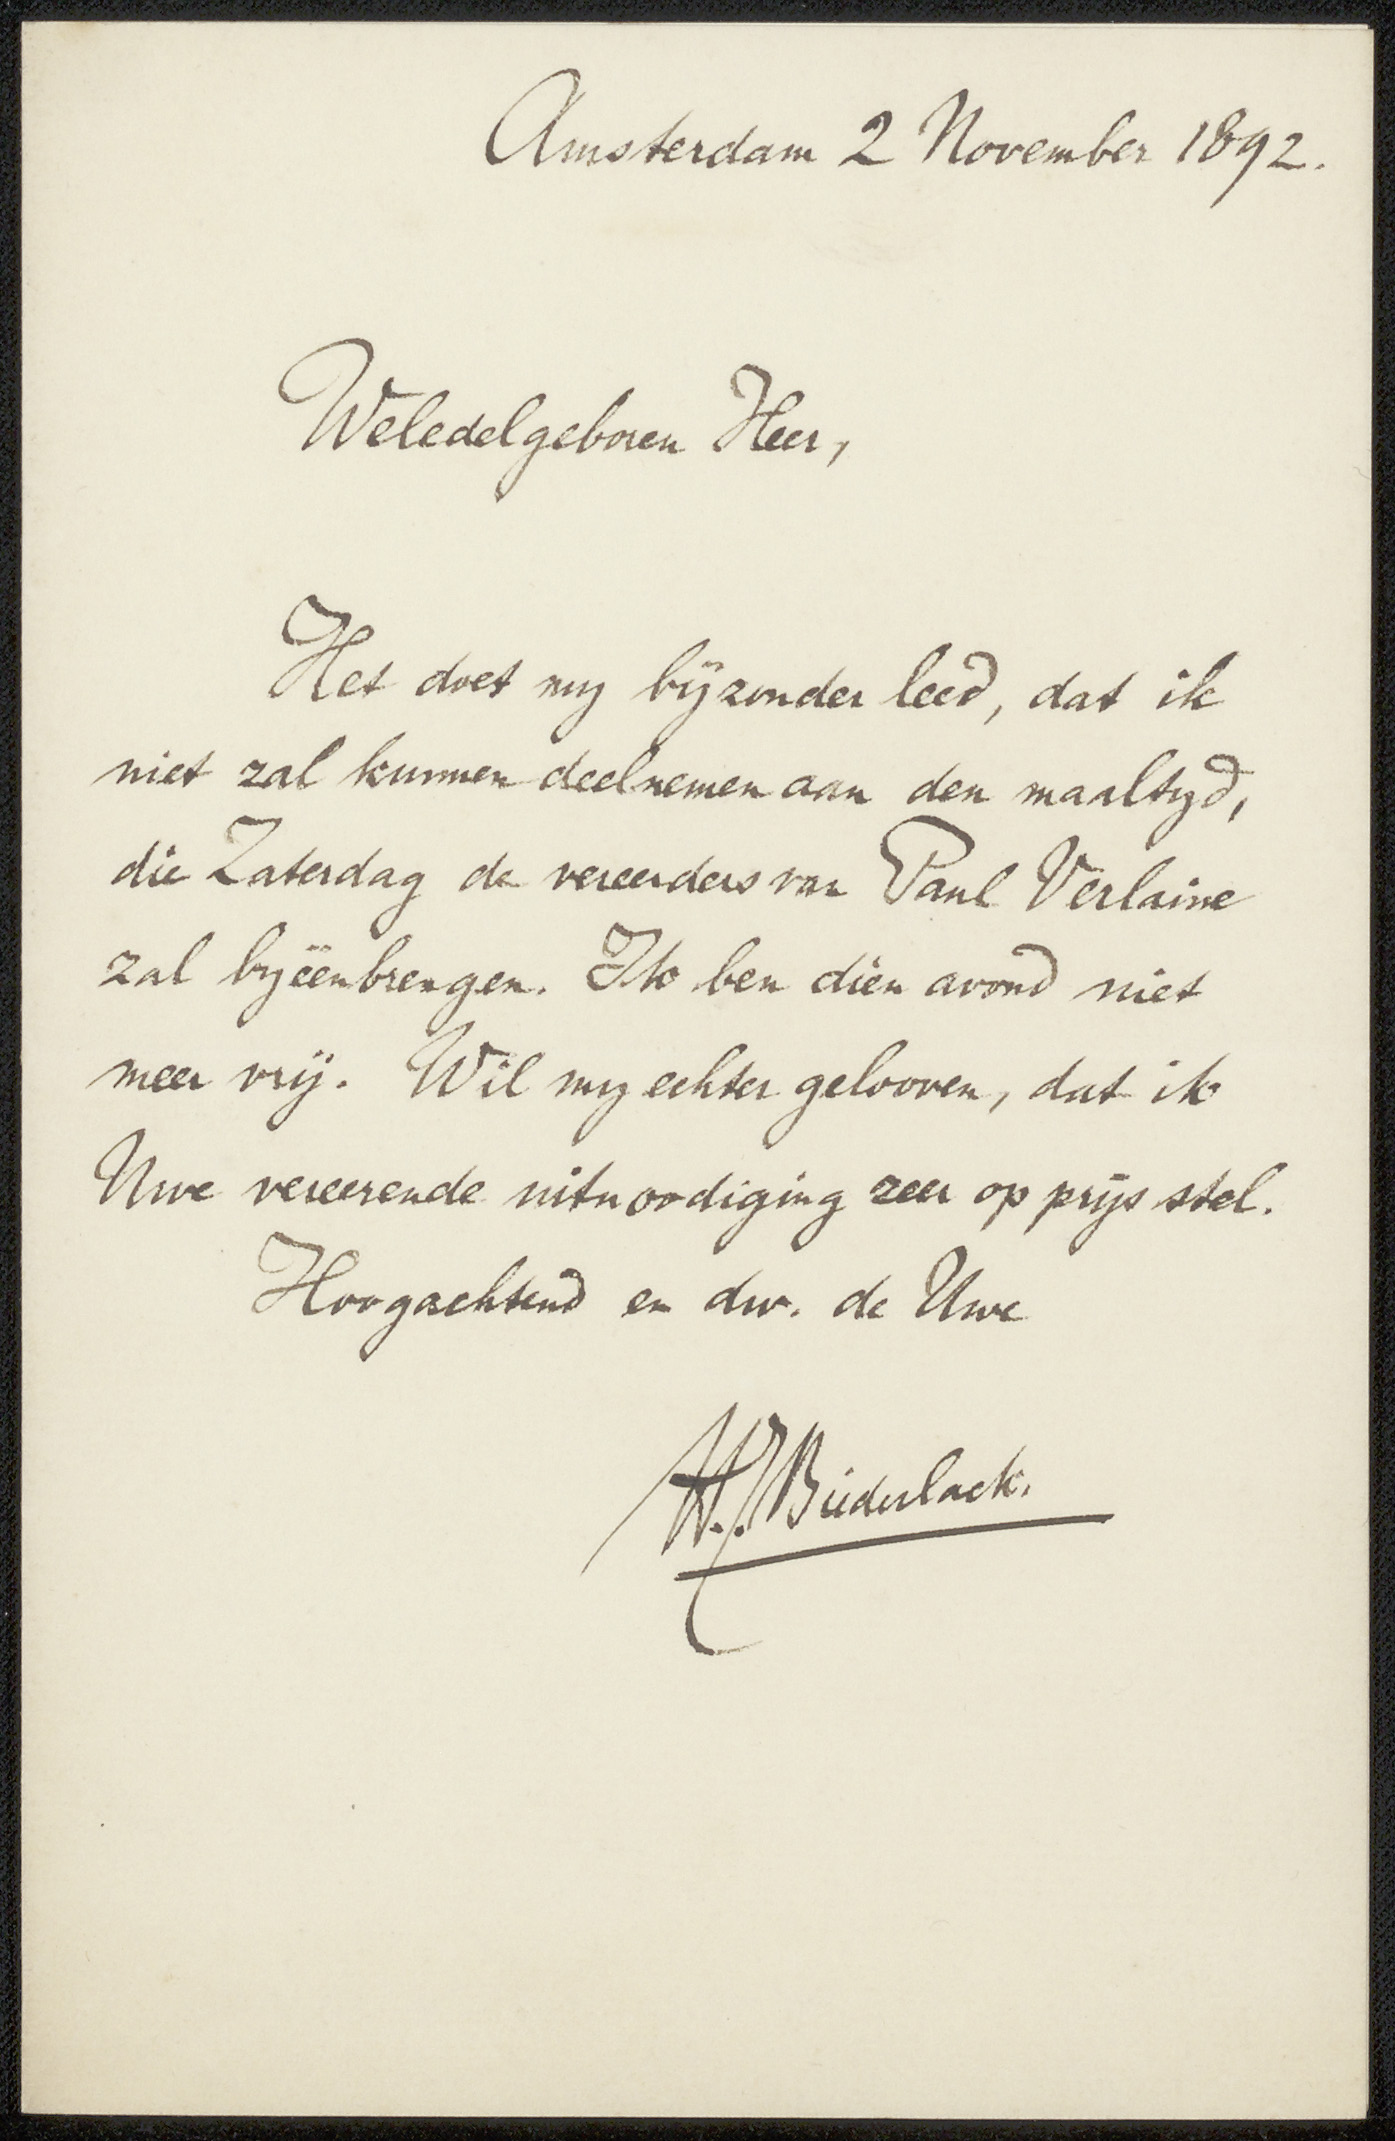 Amsterdam 2 November 1892.
Weledelgeboren Heer,
Het doet my bijzonder leed, dat ik
niet zal kunnen deelnemen aan den maaltyd,
die Zaterdag de vereerders van Paul Verlaine
zal byëenbrengen. Ik ben dien avond niet
meer vrij. Wil my echter gelooven, dat ik
Uwe vereerende uitnoodiging zeer op prijs stel.
Hoogachtend en dw. de Uwe
H.J. Biederlack.